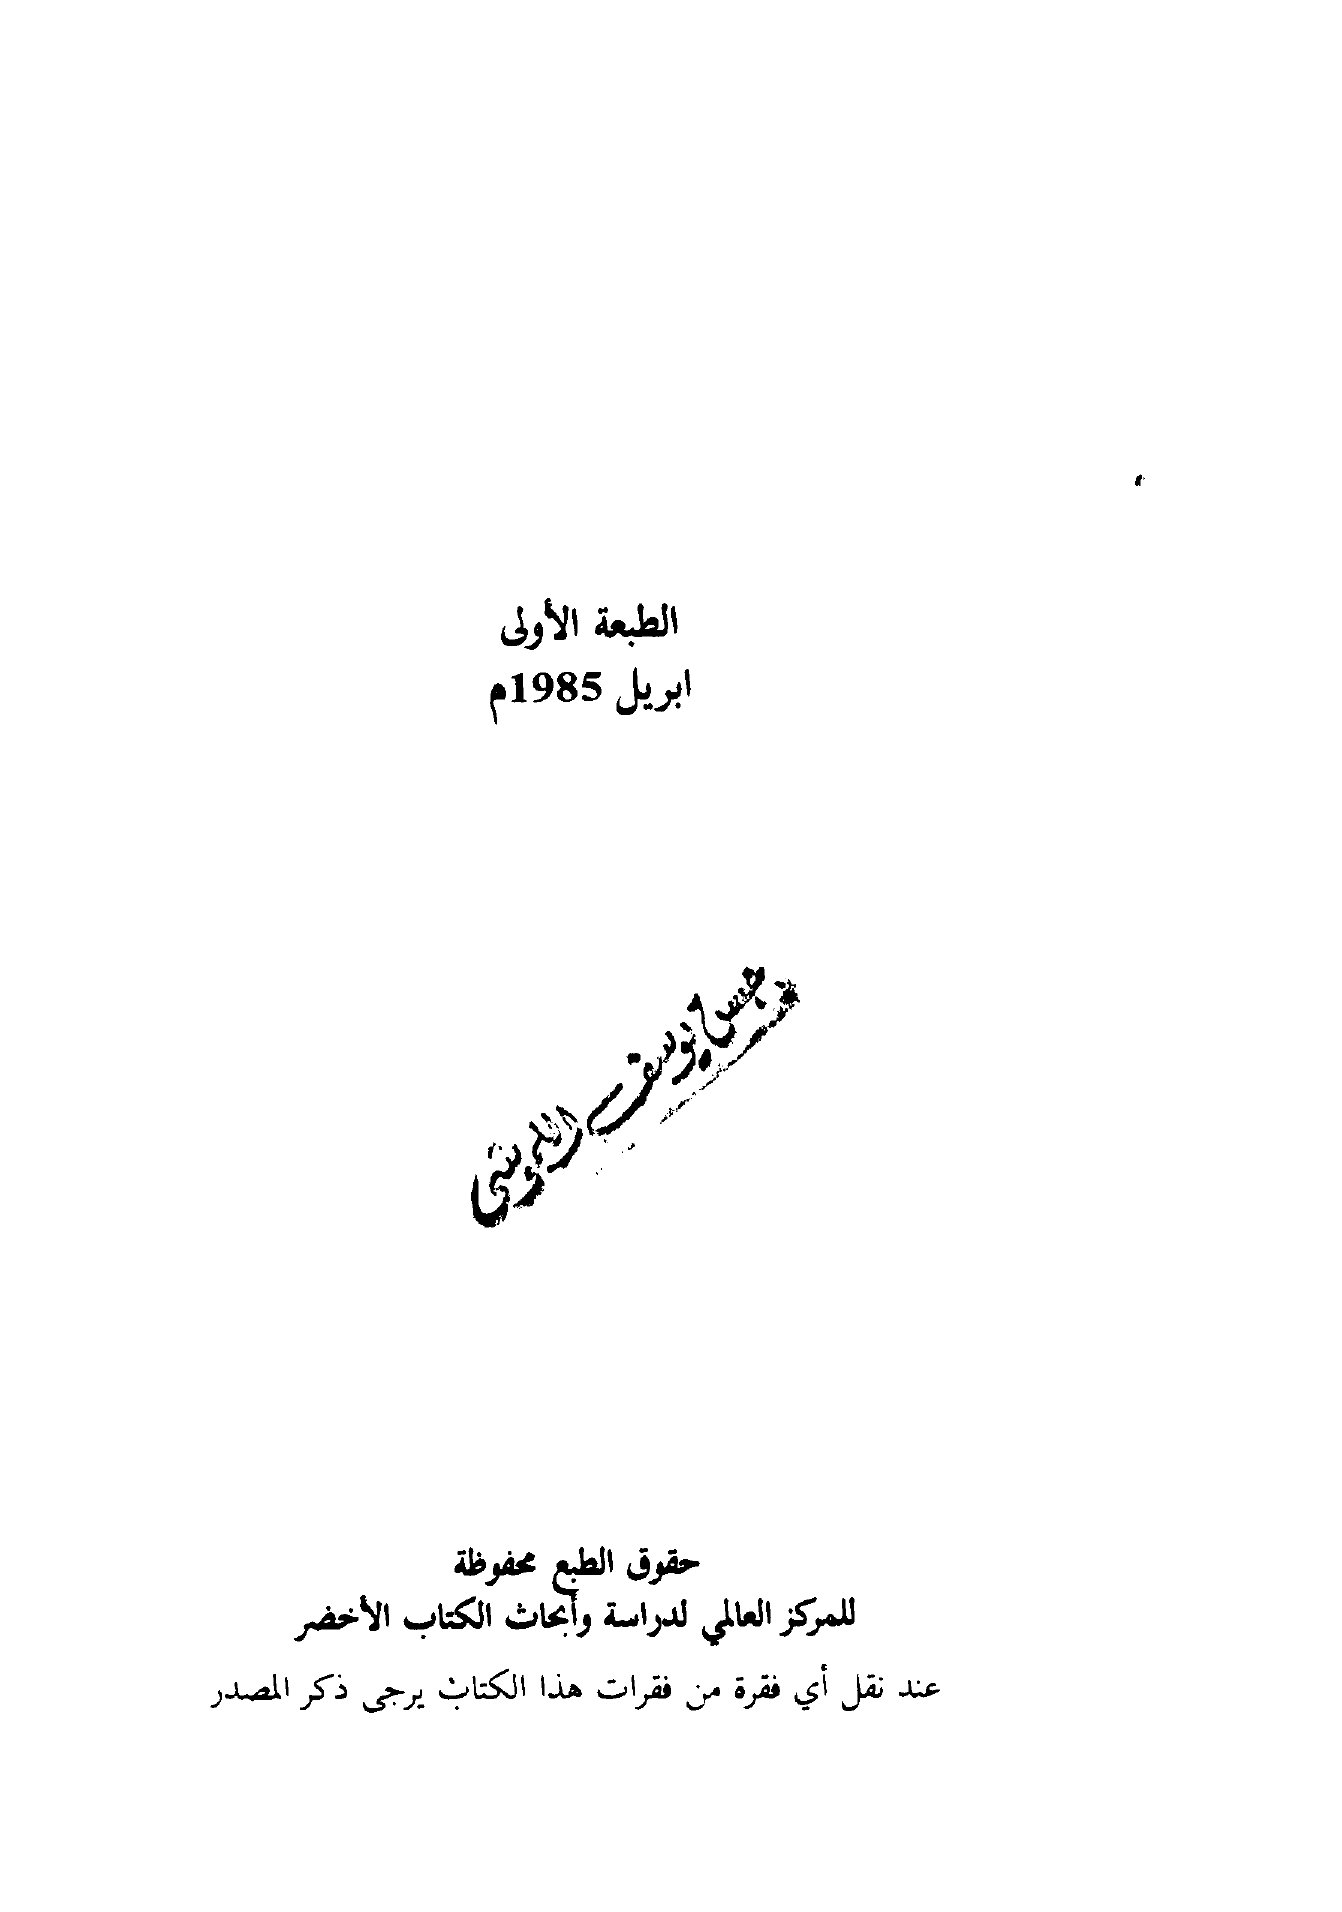 الطبعة الأولى
ابريل 1985م
يوسف
حقوق الطبع محفوظة
للمركز العالمي لدراسة وأبحاث الكتاب الأخضر
عند نقل أي فقرة من فقرات هذا الكتاب يرجى ذكر المصدر